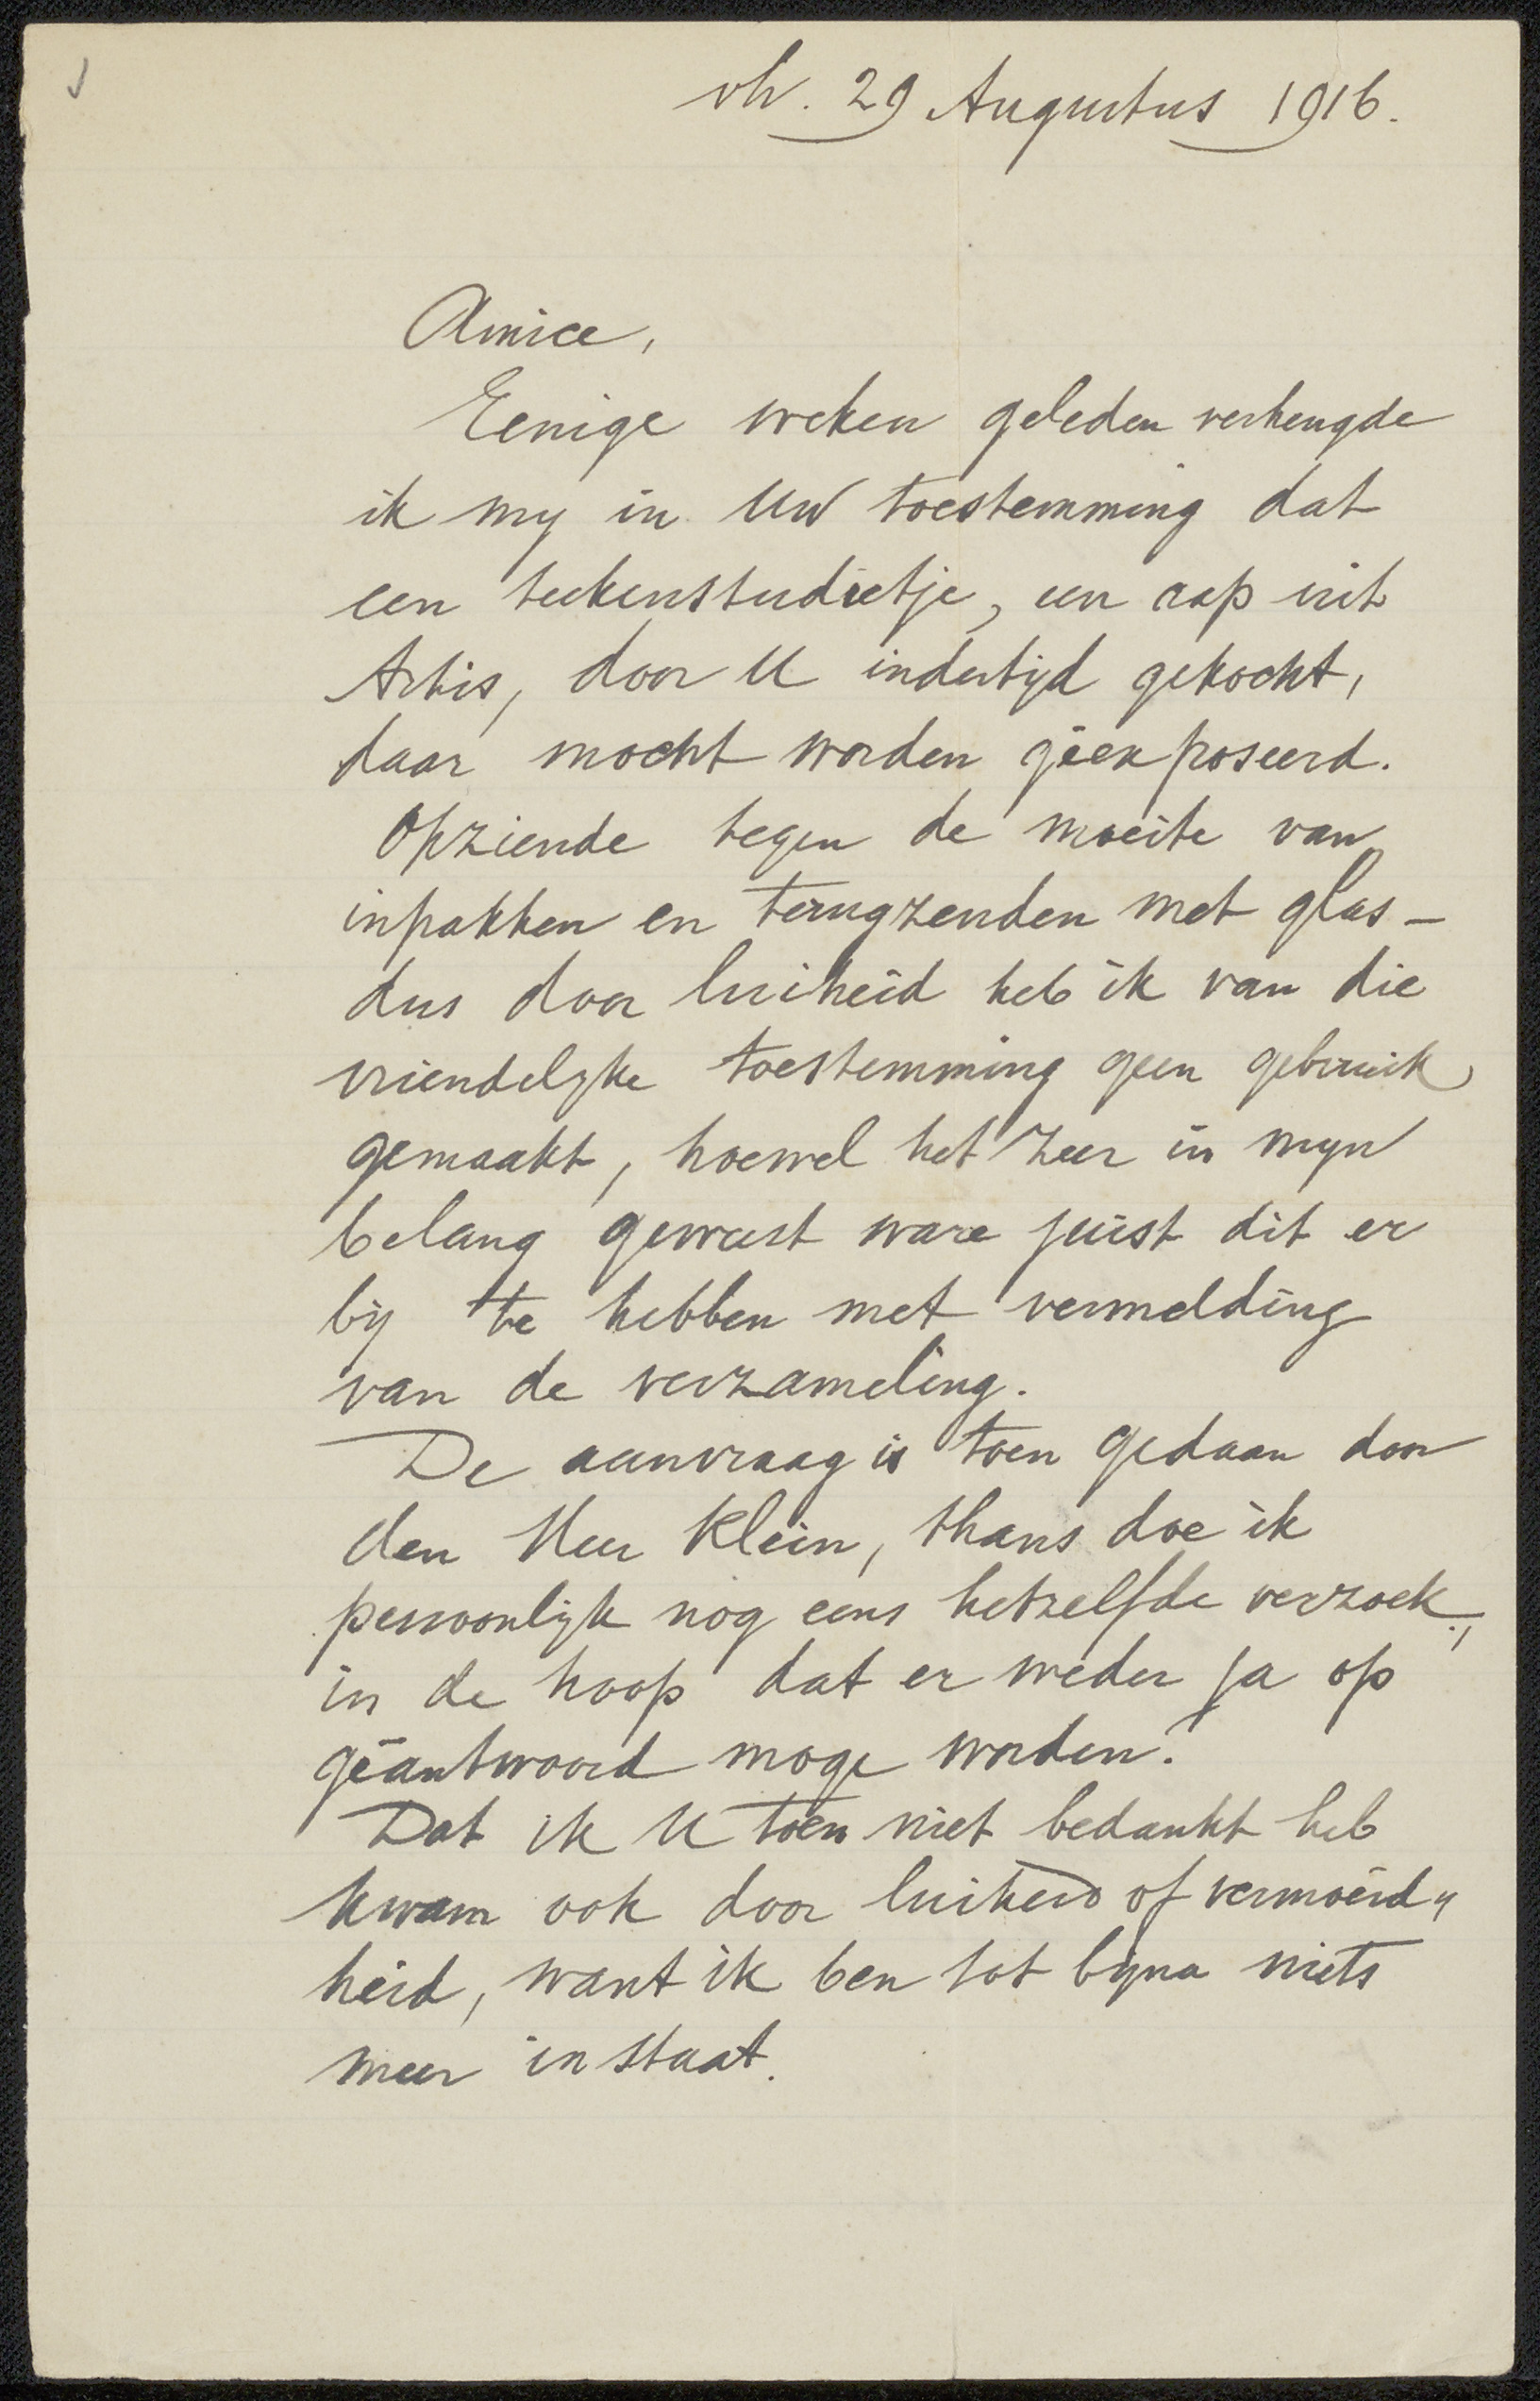 vh. 29 Augustus 1916.
Amice,
Eenige weken geleden verheugde
ik my in Uw toestemming dat
een teekenstudietje, een aap uit
Artis, door U indertijd gekocht,
daar mocht worden geëxposeerd.
Opziende tegen de moeite van
inpakken en terugzenden met glas –
dus door luiheid heb ik van die
vriendelyke toestemming geen gebruik
gemaakt, hoewel het zeer in myn
belang geweest ware juist dit er
bij te hebben met vermelding
van de verzameling.
De aanvraag is toen gedaan door
den Heer Klein, thans doe ik
persoonlijk nog eens hetzelfde verzoek,
in de hoop dat er weder ja op
geäntwoord moge worden.
Dat ik U toen niet bedankt heb
kwam ook door luiheid of vermoeid„
heid, want ik ben tot byna niets
meer in staat.